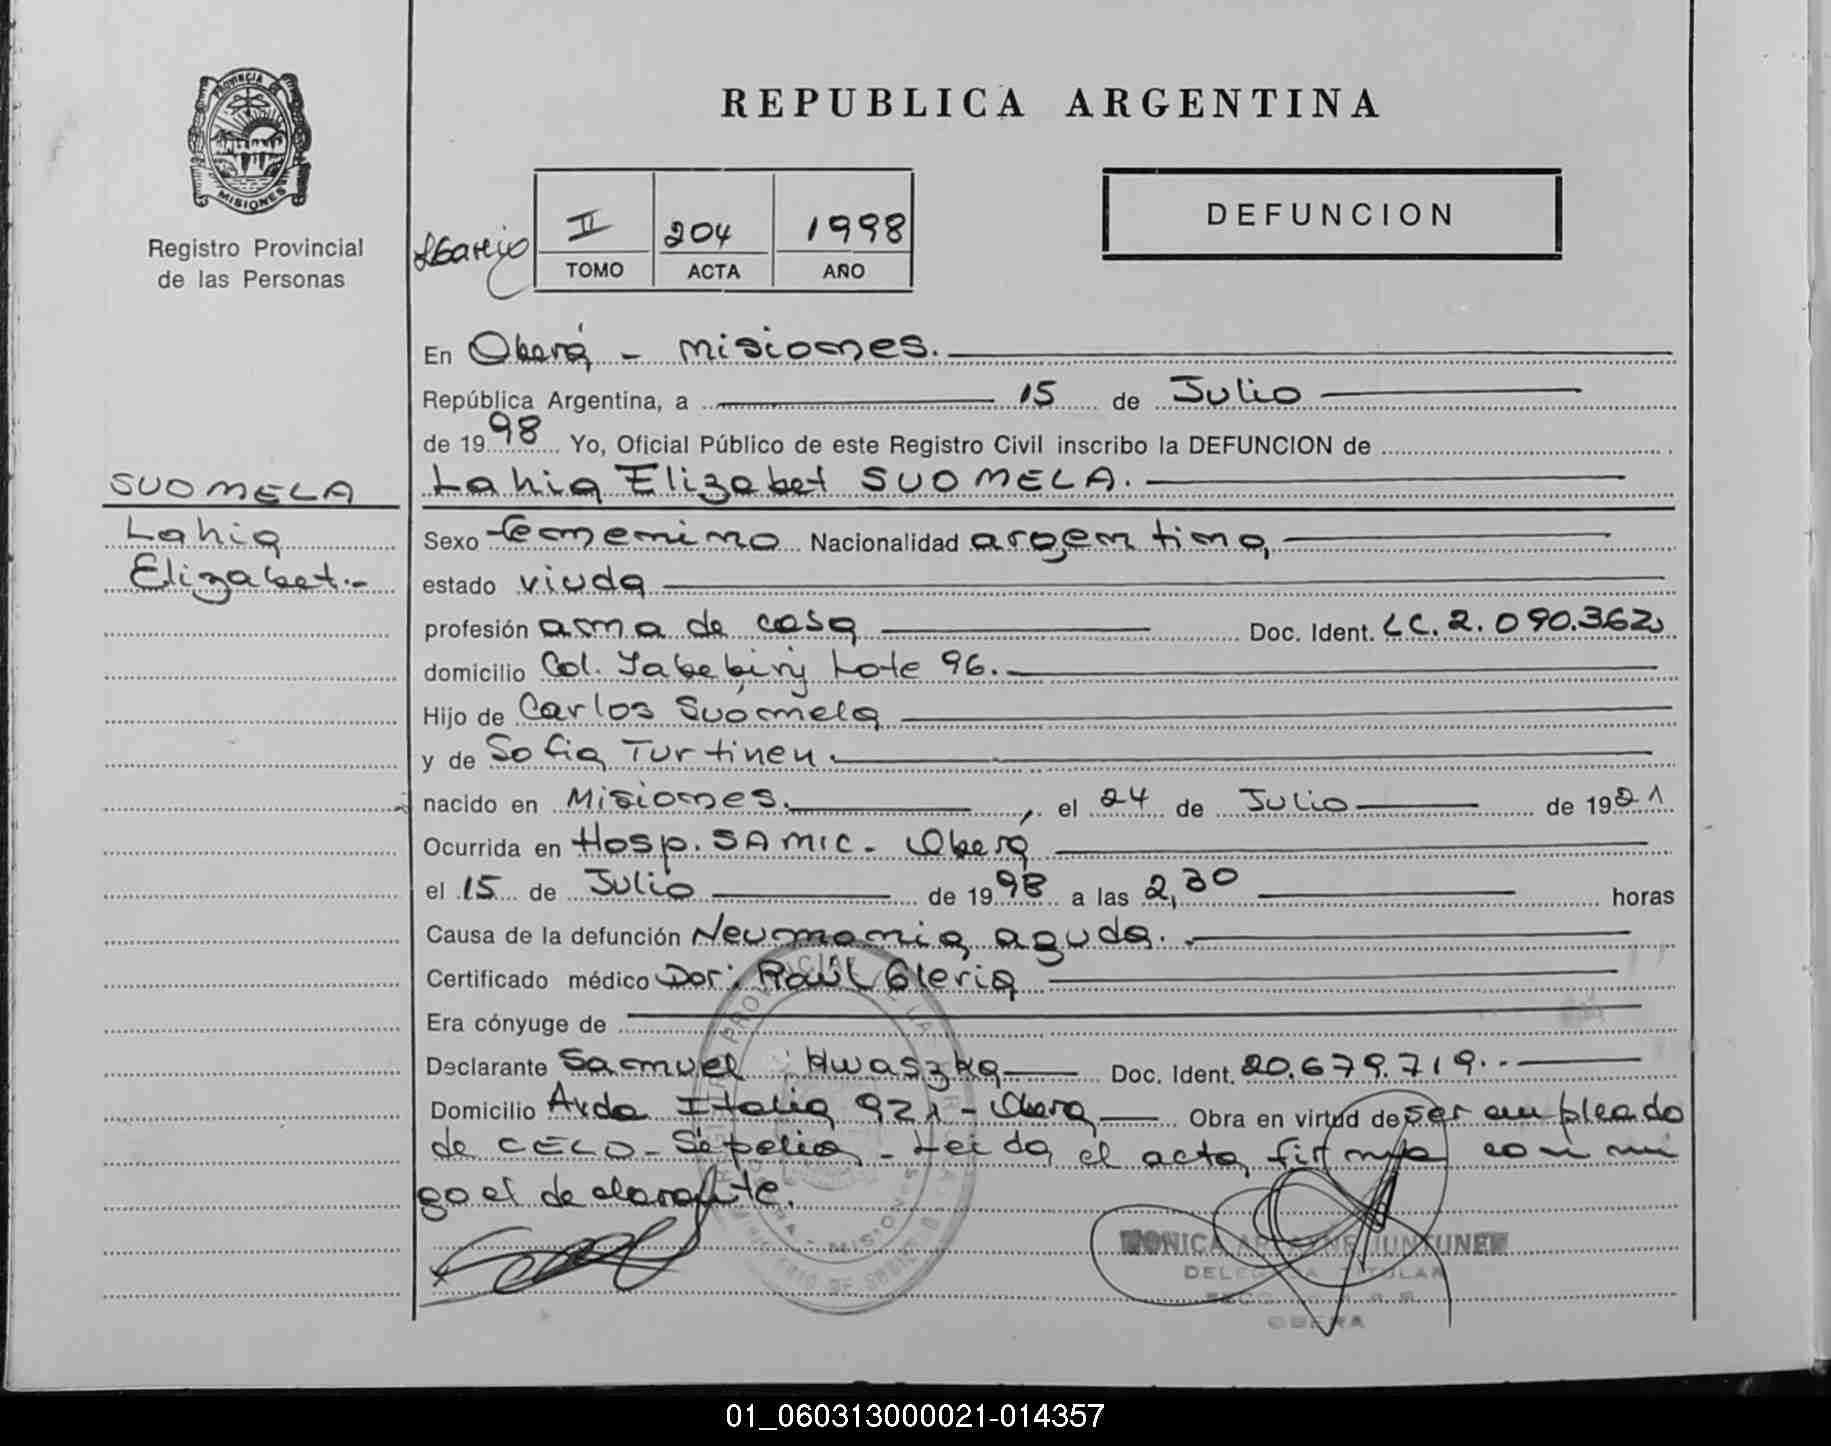 PROVINCIA
MISIONES
Registro Provincial
de las Personas
REPUBLICA ARGENTINA
II 204 1998
TOMO ACTA AÑO
DEFUNCION
En Oberá - Misiones.
República Argentina, a 15 de Julio
de 1998 Yo, Oficial Público de este Registro Civil inscribo la DEFUNCION de
SUOMELA
Lahia Elizabet SUOMELA.
Lahia
Elizabet.-
Sexo femenino Nacionalidad argentina,
estado viuda
profesión ama de casa Doc. Ident. LC. 2.090.362
domicilio Col. Yabebiry Lote 96.
Hijo de Carlos Suomela
y de Sofia Turtinen.
nacido en Misiones. , el 24 de Julio de 1921
Ocurrida en Hosp. SAMIC - Oberá
el 15 de Julio de 1998 a las 2,30 horas
Causa de la defunción Neumonia aguda.
Certificado médico Dor: Raúl Gleria
Era cónyuge de
Declarante Samuel Hwaszka Doc. Ident. 20.679.719.
Domicilio Avda Italia 921 - Oberá Obra en virtud de ser empleado
de CELO - Sepelio - Leida el acta, firma conmi
go el declarante.
MONICA JUNTUNEN
DELEGADA TITULAR
OBERA
01_060313000021-014357